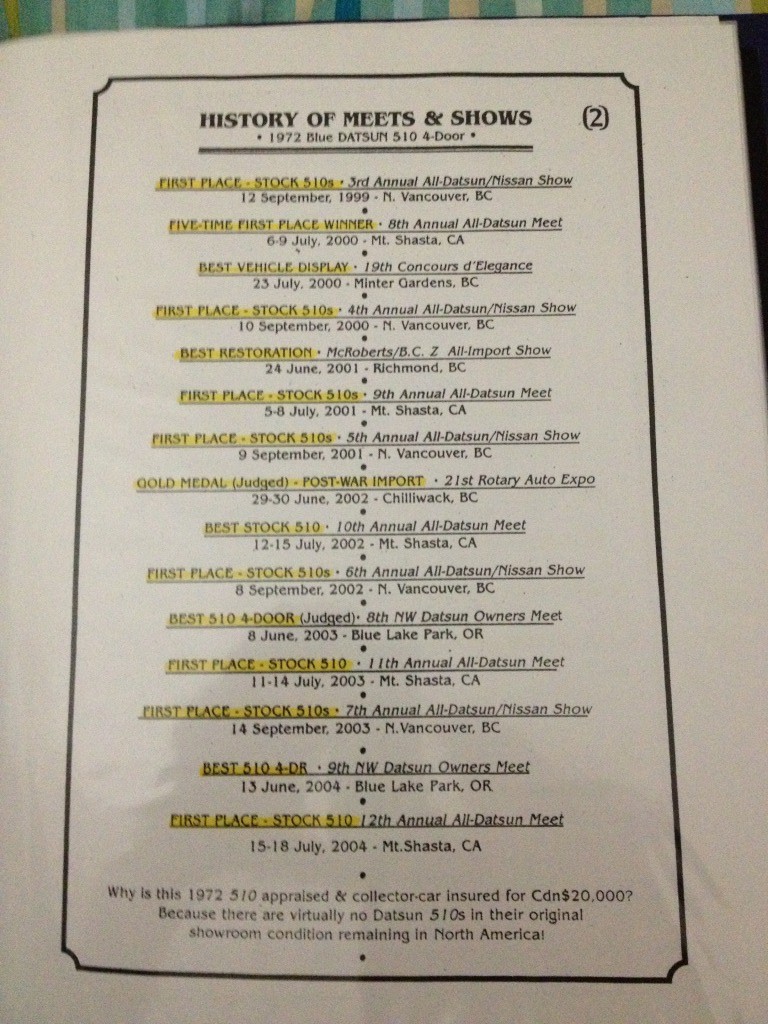 HISTORY OF MEETS & SHOWS (2)
• 1972 Blue DATSUN 510 4-Door •
FIRST PLACE - STOCK 510s • 3rd Annual All-Datsun/Nissan Show
12 September, 1999 - N. Vancouver, BC
•
FIVE-TIME FIRST PLACE WINNER • 8th Annual All-Datsun Meet
6-9 July, 2000 - Mt. Shasta, CA
•
BEST VEHICLE DISPLAY • 19th Concours d'Elegance
23 July, 2000 - Minter Gardens, BC
•
FIRST PLACE - STOCK 510s • 4th Annual All-Datsun/Nissan Show
10 September, 2000 - N. Vancouver, BC
•
BEST RESTORATION • McRoberts/B.C. Z All-Import Show
24 June, 2001 - Richmond, BC
•
FIRST PLACE - STOCK 510s • 9th Annual All-Datsun Meet
5-8 July, 2001 - Mt. Shasta, CA
•
FIRST PLACE - STOCK 510s • 5th Annual All-Datsun/Nissan Show
9 September, 2001 - N. Vancouver, BC
•
GOLD MEDAL (Judged) - POST-WAR IMPORT • 21st Rotary Auto Expo
29-30 June, 2002 - Chilliwack, BC
•
BEST STOCK 510 • 10th Annual All-Datsun Meet
12-15 July, 2002 - Mt. Shasta, CA
•
FIRST PLACE - STOCK 510s • 6th Annual All-Datsun/Nissan Show
8 September, 2002 - N. Vancouver, BC
•
BEST 510 4-DOOR (Judged)• 8th NW Datsun Owners Meet
8 June, 2003 - Blue Lake Park, OR
•
FIRST PLACE - STOCK 510 • 11th Annual All-Datsun Meet
11-14 July, 2003 - Mt. Shasta, CA
•
FIRST PLACE - STOCK 510s • 7th Annual All-Datsun/Nissan Show
14 September, 2003 - N.Vancouver, BC
•
BEST 510 4-DR • 9th NW Datsun Owners Meet
13 June, 2004 - Blue Lake Park, OR
•
FIRST PLACE - STOCK 510 12th Annual All-Datsun Meet
15-18 July, 2004 - Mt.Shasta, CA
•
Why is this 1972 510 appraised & collector-car insured for Cdn$20,000?
Because there are virtually no Datsun 510s in their original
showroom condition remaining in North America!
•